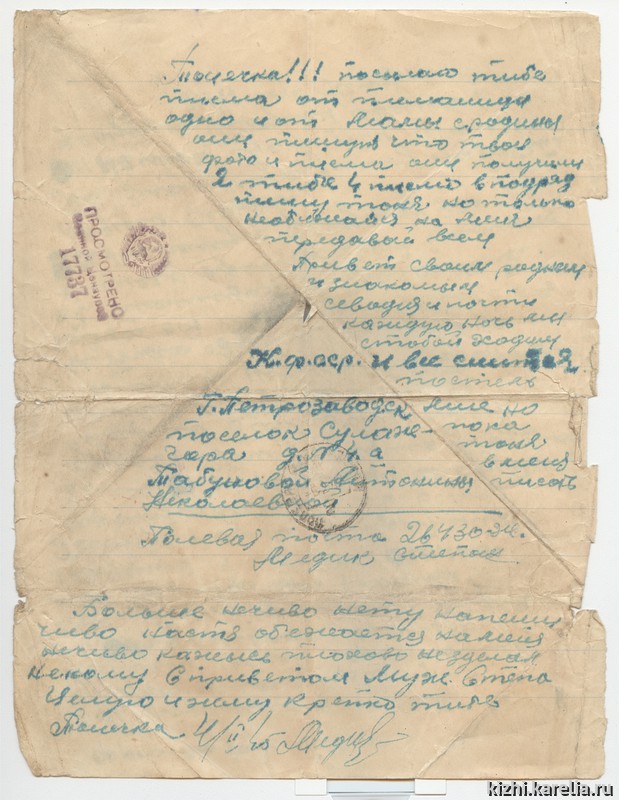 Тонечка!!! посылаю тибе
писма от
одно и от Мамы с родины
они пишут что твои
фото и писма они получили
2 тибе 4 писмо в подряд
пишу Тоня но только
необижайся на миня
передавай всем
Привет своим родным
и знакомым
севодня и почти
каждую ночь мы
стобой ходим
К.ф.сср. и все
постель
Г. Петрозаводск мне но
поселок Сулаж- пока
гора д. №4. а тоня
Табуновой Антонины писать
Николаевной
Полевая почта 26430-
Медик Степан
ПРОСМОТРЕНО
Военной Цензурой
17737
Больше нечиво нету напиши
чиво Настя обежается намня
нечиво кажись плохово незделал
некому С приветом Муж. Степа
Целую и жму крепко тибе
Тонечка 4/II/45
kizhi.karelia.ru